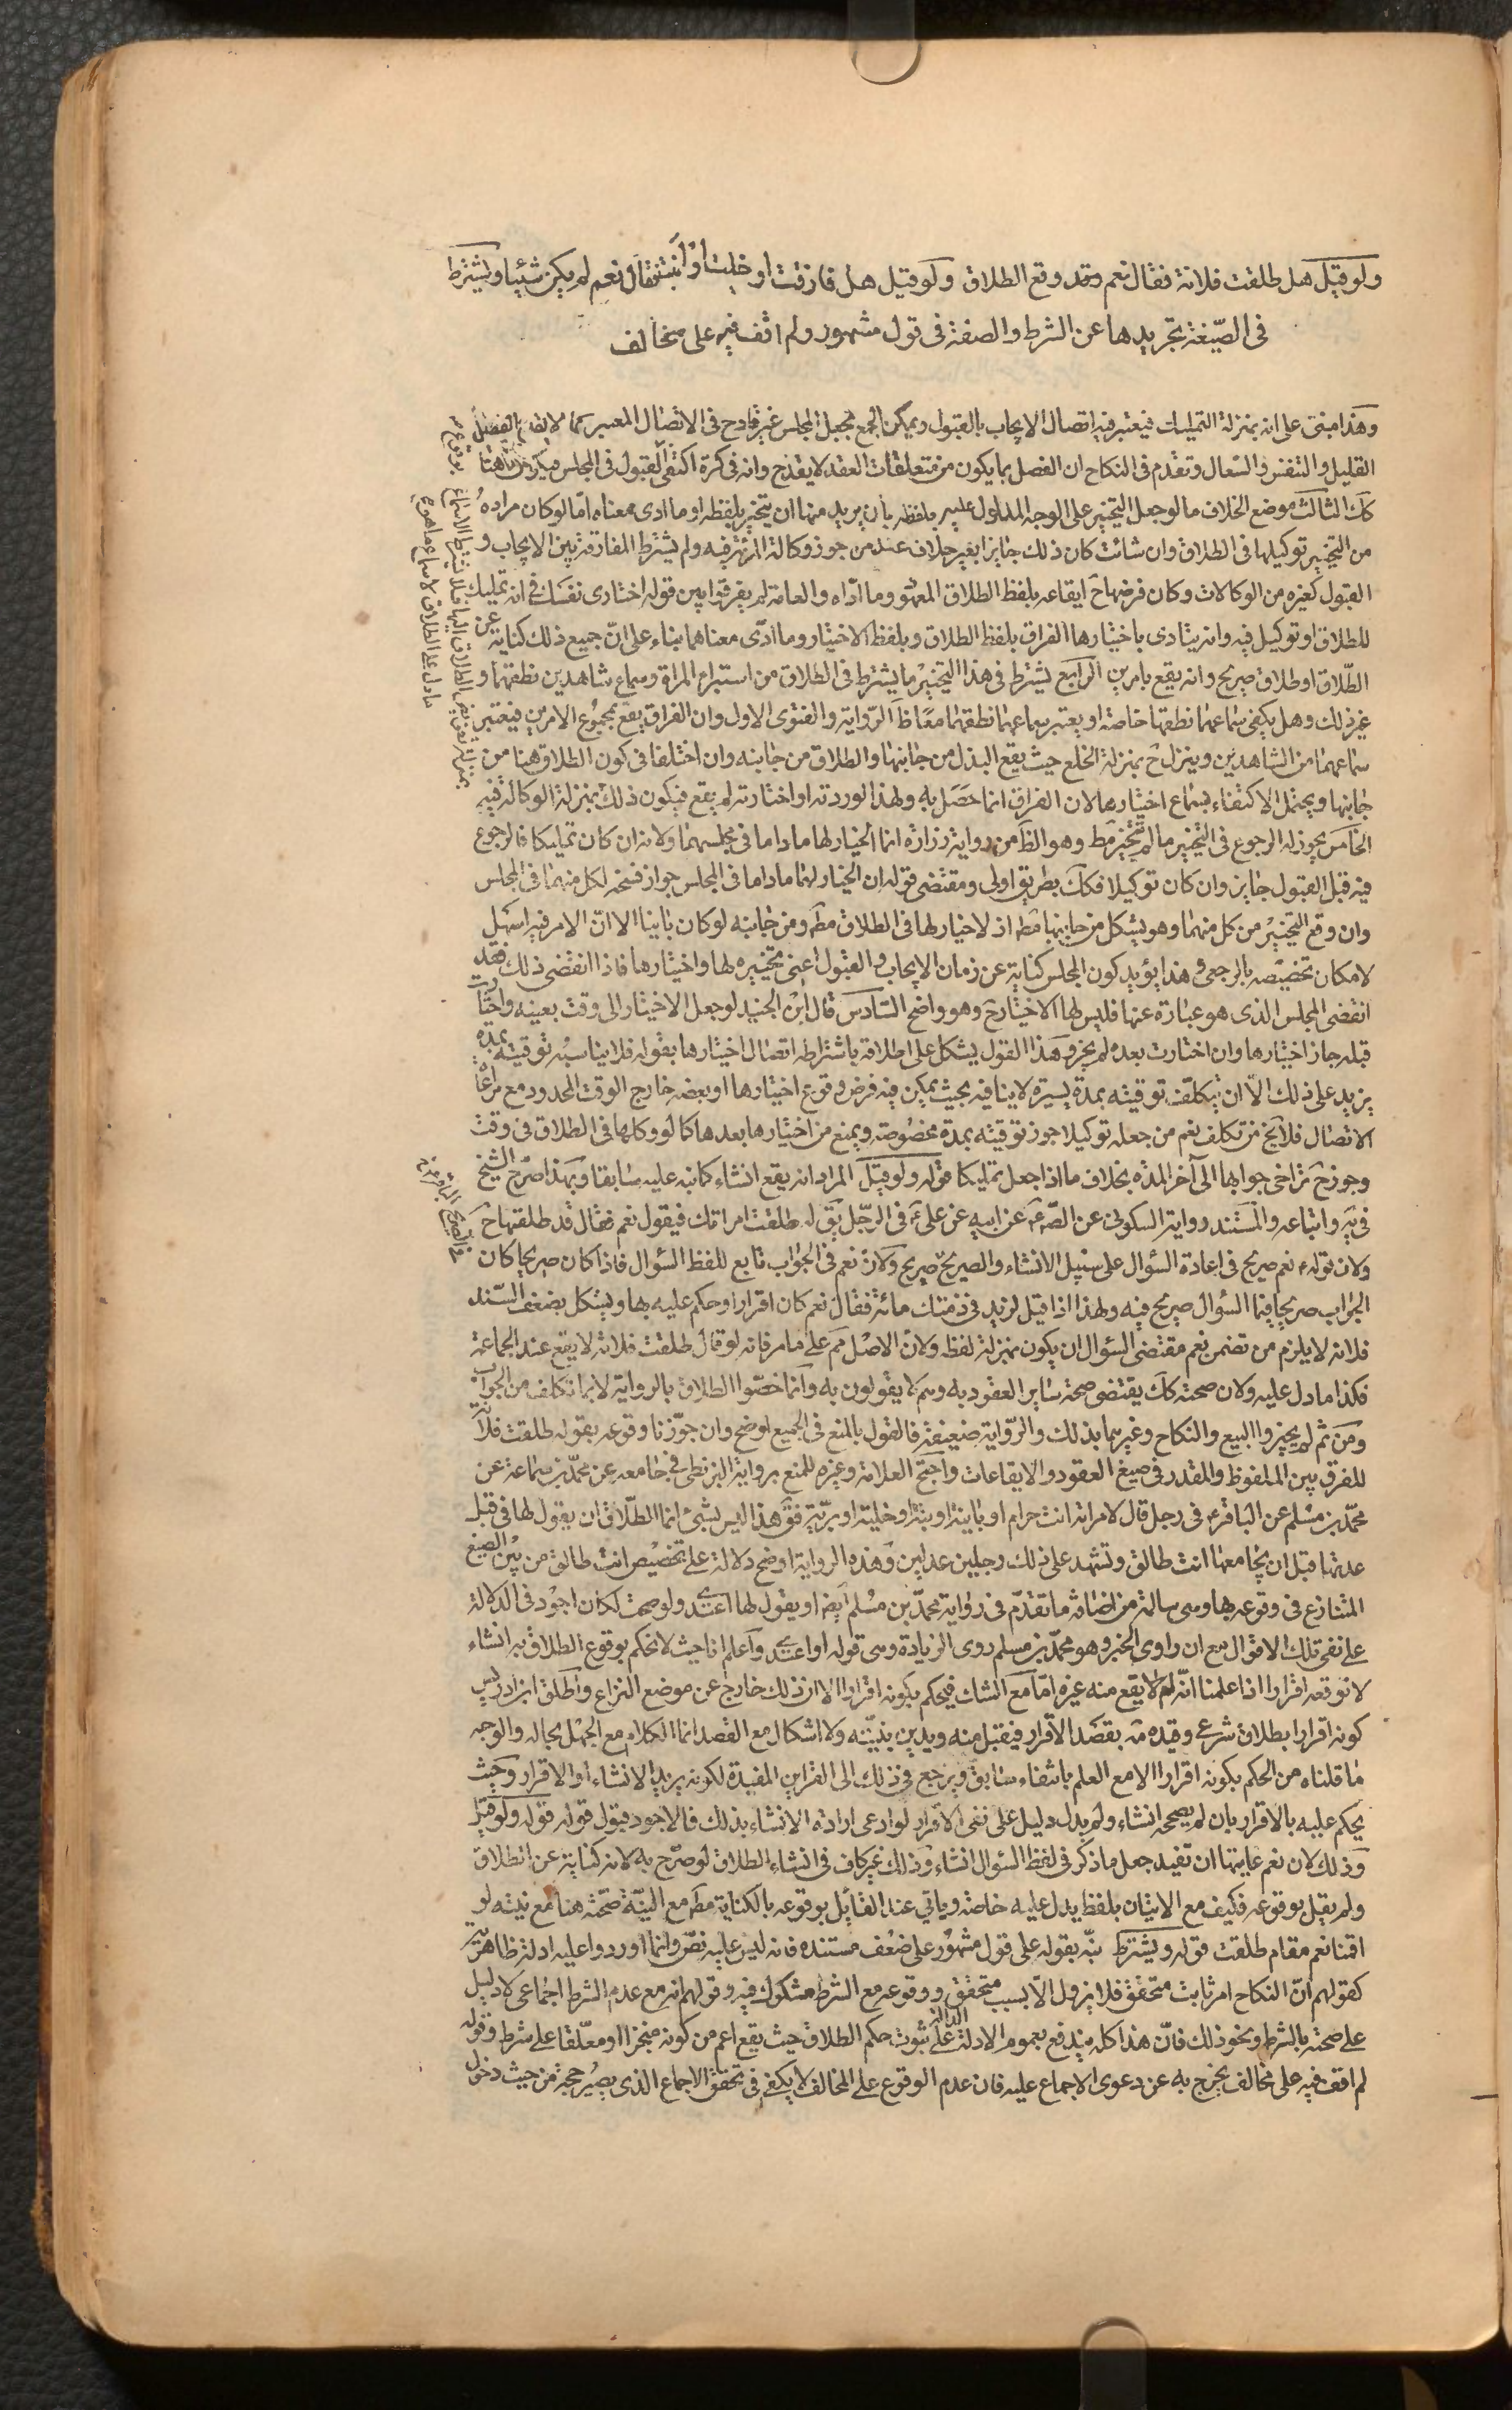 ولو قيل هل طلقت فلانة فقال نعم وقد وقع الطلاق ولو قيل هل فارقت او خليت او ابنت فقال نعم لم يكن شيئا ويشترط
فى الصّيغة تجريدها عن الشرط والصفة فى قول مشهور ولم اقف فيه على مخالف
وهذا مبنى على انه بمنزلة التمليك فيعتبر فيه اتصال الايجاب بالقبول ويمكن الجمع بجعل المجلس غير قادح فى الاتصال المعتبر كما لا يقدح الفصل
القليل والتنفس والسّعال وتقدم فى النكاح ان الفصل بما يكون من متعلقات العقد لا يقدح وانه فى كرة اكتفى القبول فى المجلس فيكون هنا
كك الثالث موضع الخلاف ما لو جعل التخيير على الوجه المدلول عليه بلفظه بان يريد منها ان يتخير بلفظه او ما ادى معناه امّا لو كان مراده
من التخيير توكيلها فى الطلاق وان شائت كان ذلك جايزا بغير خلاف عند من جوز وكالة المرئة فيه ولم يشترط المقارنة بين الايجاب و
القبول كغيره من الوكالات وكان فرضها ح ايقاعه بلفظ الطلاق المعهود وما ادّاه والعامة لم يفرقوا بين قوله اختارى نفسك فى انه تمليك
للطلاق او توكيل فيه وانه يتادى باختيارها الفراق بلفظ الطلاق وبلفظ الاختيار وما ادّى معناهما بناء على انّ جميع ذلك كناية عن
الطّلاق او طلاق صريح وانه يقع بامرين الرابع يشترط فى هذا التخيير ما يشترط فى الطلاق من استبراء المراة وسماع شاهدين نطقهما و
غير ذلك وهل يكفى سماعهما نطقها خاصة او يعتبر سماعهما نطقهما معًا ظ الرّواية والفتوى الاول وان الفراق يقع بمجموع الامرين فيعتبر
سماعهما من الشاهدين وينزل ح بمنزلة الخلع حيث يقع البذل من جانبها والطلاق من جانبه وان اختلفا فى كون الطلاق هنا من
جانبها ويحتمل الاكتفاء بسماع اختيارها لان الفراق انما حصل به ولهذا لو ردته او اختارته لم يقع فيكون ذلك بمنزلة الوكالة فيه
الخامس يجوز له الرجوع فى التخيير ما لم تتخير مط وهو الظ من رواية زرارة انما الخيار لها ما داما فى مجلسهما ولانه ان كان تمليكا فالرجوع
فيه قبل القبول جايز وان كان توكيلا فكك بطريق اولى ومقتضى قوله ان الخيار لهما ما داما فى المجلس جواز فسخه لكل منهما فى المجلس
وان وقع التخيير من كل منهما وهو يشكل من جانبها مط اذ لا خيار لها فى الطلاق مط ومن جانبه لو كان باينا الا انّ الامر فيه اسهل
لامكان تخصيصه بالرجعى وهذا يؤيد كون المجلس كناية عن زمان الايجاب والقبول اعنى تخييره لها واختيارها فاذا انقضى ذلك فقد
انقضى المجلس الذى هو عبارة عنها فليس لها الاختيار ح وهو واضح السّادس قال ابن الجنيد لو جعل الاختيار الى وقت بعينه واختارت
قبله جاز اختيارها وان اختارت بعده لم يجز وهذا القول يشكل على اطلاقه باشتراطه اتصال اختيارها بقوله فلا يناسبه توقيته بمدة
يزيد على ذلك الاّ ان يتكلف توقيته بمدة يسيرة لا ينافيه بحيث يمكن فيه فرض وقوع اختيارها او بعضه خارج الوقت المحدود مع مراعاة
الاتصال فلا يخ من تكلف نعم من جعله توكيلا جوز توقيته بمدة مخصوصة ويمنع من اختيارها بعدها كما لو وكلها فى الطلاق فى وقت
وجوز ح تراخى جوابها الى آخر المدّة بخلاف ما اذا جعل تمليكا قوله ولو قيل المراد انه يقع انشاء كما نبه عليه سابقا وبهذا صرّح الشيخ
فى يه واتباعه والمستند رواية السكونى عن الصّ ع عن ابيه عن على ع فى الرجل يق له طلقت امراتك فيقول نعم فقال قد طلقها ح
ولان قوله نعم صريح فى اعادة السؤال على سبيل الانشاء والصريح صريح ولان نعم فى الجواب تابع للفظ السؤال فاذا كان صريحا كان
الجواب صريحا فيما السؤال صريح فيه ولهذا اذا قيل لزيد فى ذمتك مائة فقال نعم كان اقرارا وحكم عليه بها ويشكل بضعف السّند
فلانه لا يلزم من تضمن نعم مقتضى السؤال ان يكون بمنزلة لفظه ولان الاصل مم على ما مر فانه لو قال طلقت فلانة لا يقع عند الجماعة
فكذا ما دل عليه ولان صحته كك يقتضى صحة ساير العقود به وهم لا يقولون به وانما خصّوا الطلاق بالرواية لا بما تكلف من الجواب
ومن ثم لم يجيزوا البيع والنكاح وغيرهما بذلك والرّواية ضعيفة فالقول بالمنع فى الجميع اوضح وان جوّزنا وقوعه بقوله طلقت فلانة
للفرق بين الملفوظ والمقدر فى صيغ العقود والايقاعات واحتج العلامة وغيره للمنع برواية البزنطى فى جامعه عن محمّد بن سماعة عن
محمّد بن مسلم عن الباقر ع فى رجل قال لامراته انت حرام او باينة او بتة او خلية او بريّة فق هذا ليس بشئ انما الطّلاق ان يقول لها فى قبل
عدتها قبل ان يجامعها انت طالق وتشهد على ذلك رجلين عدلين وهذه الرواية اوضح دلالة على تخصيص انت طالق من بين الصيغ
المتنازع فى وقوعه بها وهى سالمة من اضافة ما تقدّم فى رواية محمّد بن مسلم ايضا او يقول لها اعتدى ولو صحت لكان اجود فى الدلالة
على نفى تلك الاقوال مع ان راوى الخبر وهو محمّد بن مسلم روى الزيادة وهى قوله او اعتدى واعلم انا حيث لا نحكم بوقوع الطلاق به انشاء
لا نوقعه اقرارا اذا علمنا انّه لم يقع منه غيره امّا مع الشك فيحكم بكونه اقرارا الا ان ذلك خارج عن موضع النزاع واطلق ابن ادريس
كونه اقرارا بطلاق شرعى وقيده مه بقصد الاقرار فيقبل منه ويدين بنيّته ولا اشكال مع القصد انما الكلام مع الجهل بحاله والوجه
ما قلناه من الحكم بكونه اقرارا الا مع العلم بانتفاء سابق ويرجع فى ذلك الى القراين المفيدة لكونه يريد الانشاء او الاقرار وحيث
يحكم عليه بالاقرار بان لم يصححه انشاء ولم يدل دليل على نفى الاقرار لو ادعى ارادة الانشاء بذلك فالاجود قبول قوله قوله ولو قيل
وذلك لان نعم غايتها ان تفيد جعل ما ذكر فى لفظ السؤال انشاء وذلك غير كاف فى انشاء الطلاق لو صرّح به لانه كناية عن الطلاق
ولم يقبل بوقوعه فكيف مع الاتيان بلفظ يدل عليه خاصة وياتى عند القائل بوقوعه بالكناية مط مع النيّة صحّته هنا مع نيته لو
اقمنا نعم مقام طلقت قوله ويشترط نبّه بقوله على قول مشهور على ضعف مستنده فانه ليس عليه نصّ وانما اوردوا عليه ادلة ظاهرية
كقولهم انّ النكاح امر ثابت متحقق فلا يزول الاّ بسبب متحقق ووقوعه مع الشرط مشكوك فيه وقولهم انه مع عدم الشرط اجماعى ولا دليل
على صحته بالشرط ونحو ذلك فانّ هذا كله يندفع بعموم الادلة الدالة على ثبوت حكم الطلاق حيث يقع اعم من كونه منجزا او معلّقا على شرط وقوله
لم اقف فيه على مخالف يخرج به عن دعوى الاجماع عليه فان عدم الوقوع على المخالف لا يكفى فى تحقق الاجماع الذى يصير حجة من حيث دخول